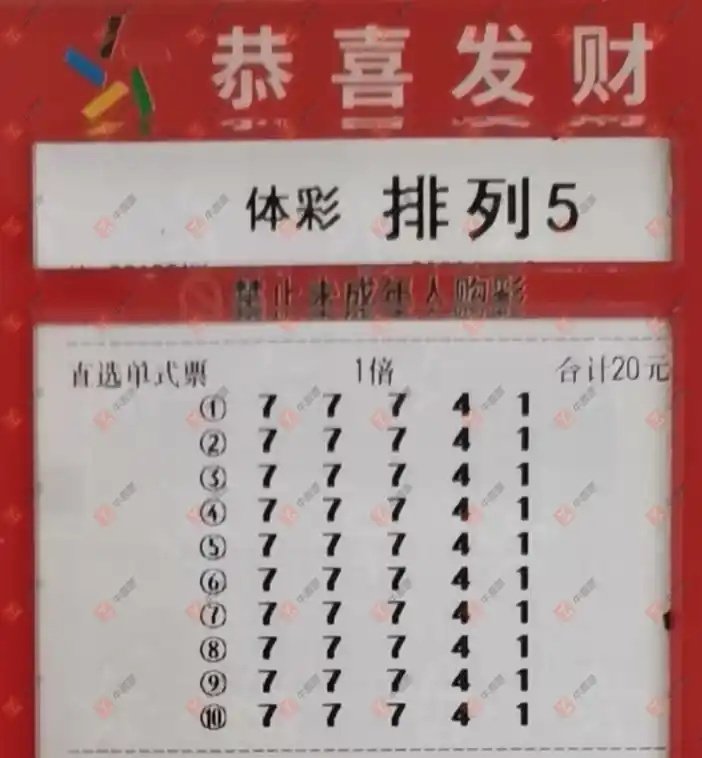 恭喜发财
体彩 排列5
禁止未成年人购彩
直选单式票 1倍 合计20元
① 7 7 7 4 1
② 7 7 7 4 1
③ 7 7 7 4 1
④ 7 7 7 4 1
⑤ 7 7 7 4 1
⑥ 7 7 7 4 1
⑦ 7 7 7 4 1
⑧ 7 7 7 4 1
⑨ 7 7 7 4 1
⑩ 7 7 7 4 1